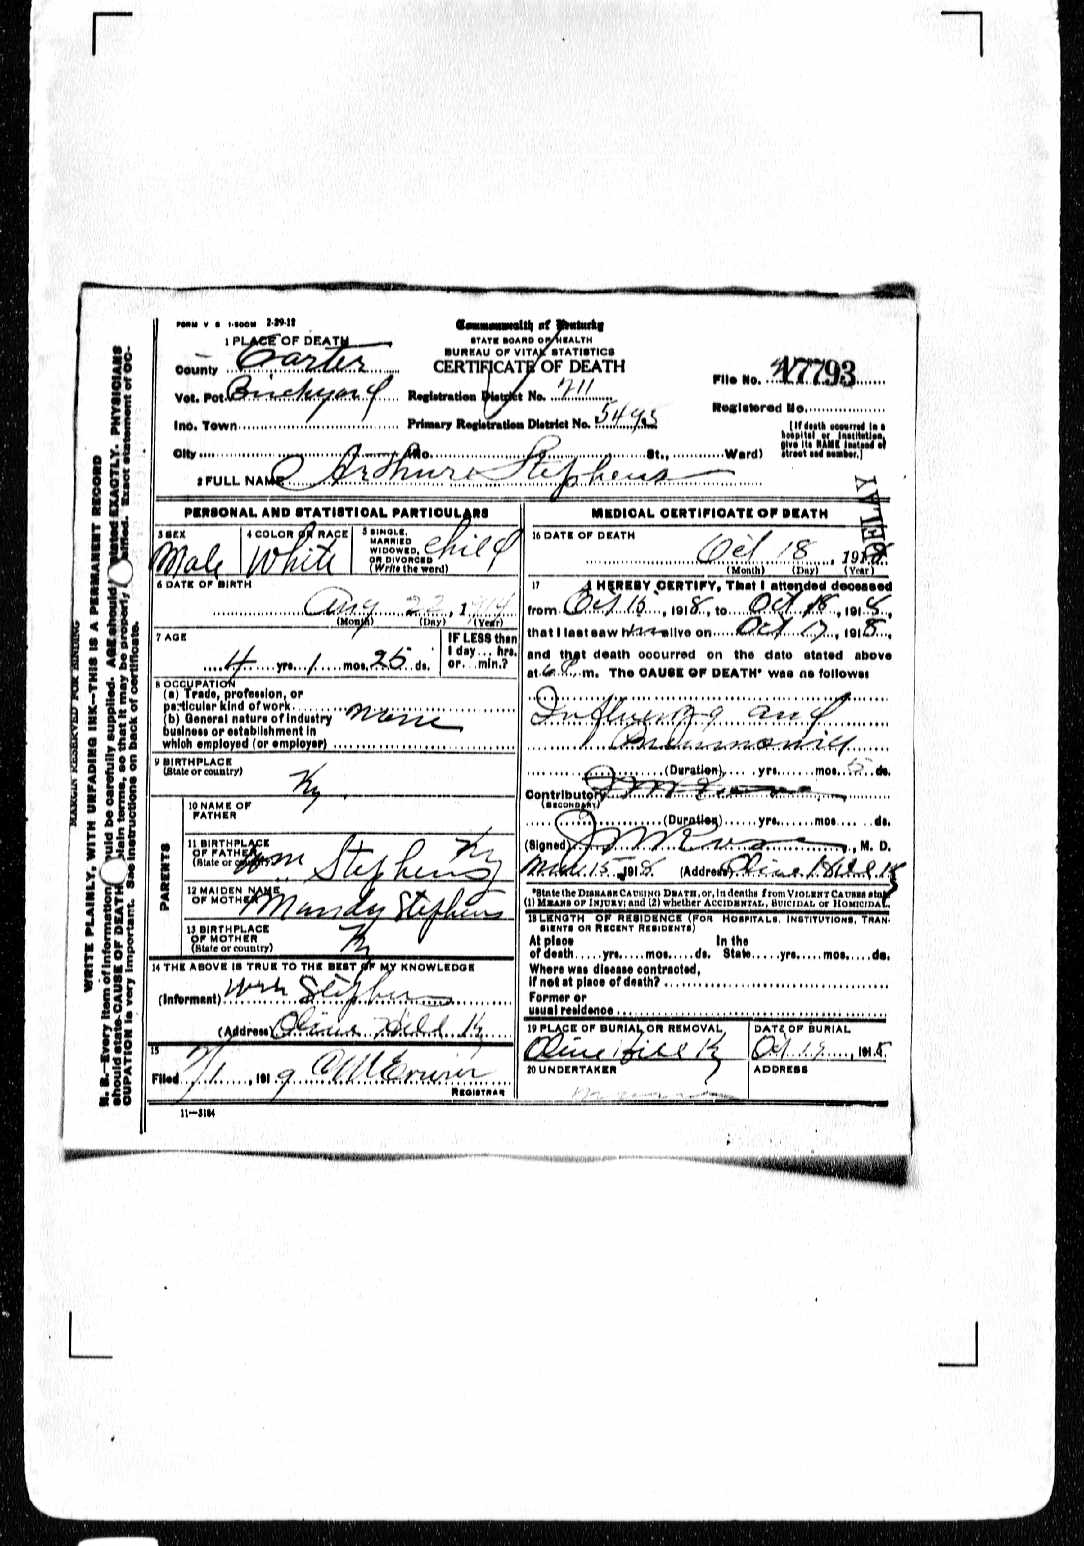 FORM V S 1-500M 2-29-12
Commonwealth of Kentucky
STATE BOARD OF HEALTH
BUREAU OF VITAL STATISTICS
CERTIFICATE OF DEATH
1 PLACE OF DEATH
County Carter
Vot. Pct.
Registration District No. 711
File No. 47793
Inc. Town
Primary Registration District No. 5495
Registered No.
[If death occurred in a hospital or institution, give its NAME instead of street and number.]
City No. St., Ward)
2 FULL NAME Arthure Stephens
DELAY
PERSONAL AND STATISTICAL PARTICULARS
3 SEX Male
4 COLOR OR RACE White
5 SINGLE, MARRIED WIDOWED, OR DIVORCED (Write the word) child
6 DATE OF BIRTH
Aug 22, 1914
(Month) (Day) (Year)
7 AGE
4 yrs. 1 mos. 25 ds.
IF LESS than 1 day... hrs. or... min.?
8 OCCUPATION
(a) Trade, profession, or
particular kind of work none
(b) General nature of industry
business or establishment in
which employed (or employer)
9 BIRTHPLACE
(State or country) Ky
PARENTS
10 NAME OF FATHER
11 BIRTHPLACE OF FATHER (State or country) Wm Stephens Ky
12 MAIDEN NAME OF MOTHER Mandy Stephens
13 BIRTHPLACE OF MOTHER (State or country) Ky
14 THE ABOVE IS TRUE TO THE BEST OF MY KNOWLEDGE
(Informant) Wm Stephens
(Address) Olive Hill Ky
15
Filed 7/1, 1919
REGISTRAR
11-3184
MEDICAL CERTIFICATE OF DEATH
16 DATE OF DEATH
Oct 18, 1918
(Month) (Day) (Year)
17 I HEREBY CERTIFY, That I attended deceased
from Oct 15, 1918, to Oct 18, 1918,
that I last saw him alive on Oct 17, 1918,
and that death occurred on the date stated above
at 6 P. m. The CAUSE OF DEATH* was as follows:
Influenza and
(Duration) yrs. mos. 5 ds.
Contributory
(SECONDARY)
(Duration) yrs. mos. ds.
(Signed) , M. D.
15, 1918 (Address) Olive Hill Ky
*State the DISEASE CAUSING DEATH, or, in deaths from VIOLENT CAUSES state
(1) MEANS OF INJURY; and (2) whether ACCIDENTAL, SUICIDAL or HOMICIDAL.
18 LENGTH OF RESIDENCE (FOR HOSPITALS, INSTITUTIONS, TRANSIENTS OR RECENT RESIDENTS)
At place In the
of death yrs. mos. ds. State yrs. mos. ds.
Where was disease contracted,
if not at place of death?
Former or
usual residence
19 PLACE OF BURIAL OR REMOVAL
Olive Hill Ky
DATE OF BURIAL
Oct 19, 1918
20 UNDERTAKER
ADDRESS
MARGIN RESERVED FOR BINDING
WRITE PLAINLY, WITH UNFADING INK—THIS IS A PERMANENT RECORD
N. B.—Every item of information should be carefully supplied. AGE should be stated EXACTLY. PHYSICIANS
should state CAUSE OF DEATH in plain terms, so that it may be properly classified. Exact statement of OC-
CUPATION is very important. See instructions on back of certificate.